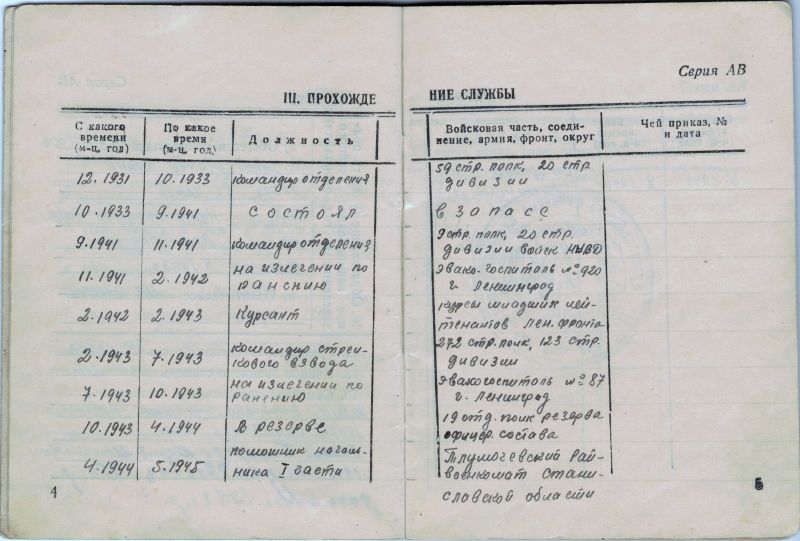 Серия АВ
III. ПРОХОЖДЕ НИЕ СЛУЖБЫ
С какого времени (м-ц, год)
По какое время (м-ц, год)
Должность
Войсковая часть, соеди-
нение, армия, фронт, округ
Чей приказ, №
и дата
12.1931 10.1933 командир отделения 59 стр. полк, 20 стр.
дивизии
10.1933 9.1941 состоял в запасе
9.1941 11.1941 командир отделения 9 стр. полк, 20 стр.
дивизии войск НКВД
11.1941 2.1942 на излечении по эвако-госпиталь № 920
ранению г. Ленинград
2.1942 2.1943 Курсант курсы младших лей-
тенантов Лен. фронта
2.1943 7.1943 командир стрел- 272 стр. полк, 123 стр.
кового взвода дивизии
7.1943 10.1943 на излечении по эвакогоспиталь № 87
ранению г. Ленинград
10.1943 4.1944 в резерве 19 отд. полк резерва
офицер. состава
4.1944 5.1945 помошник началь- Тлумочевский Рай-
ника I части военкомат Стани-
славской области
4 5